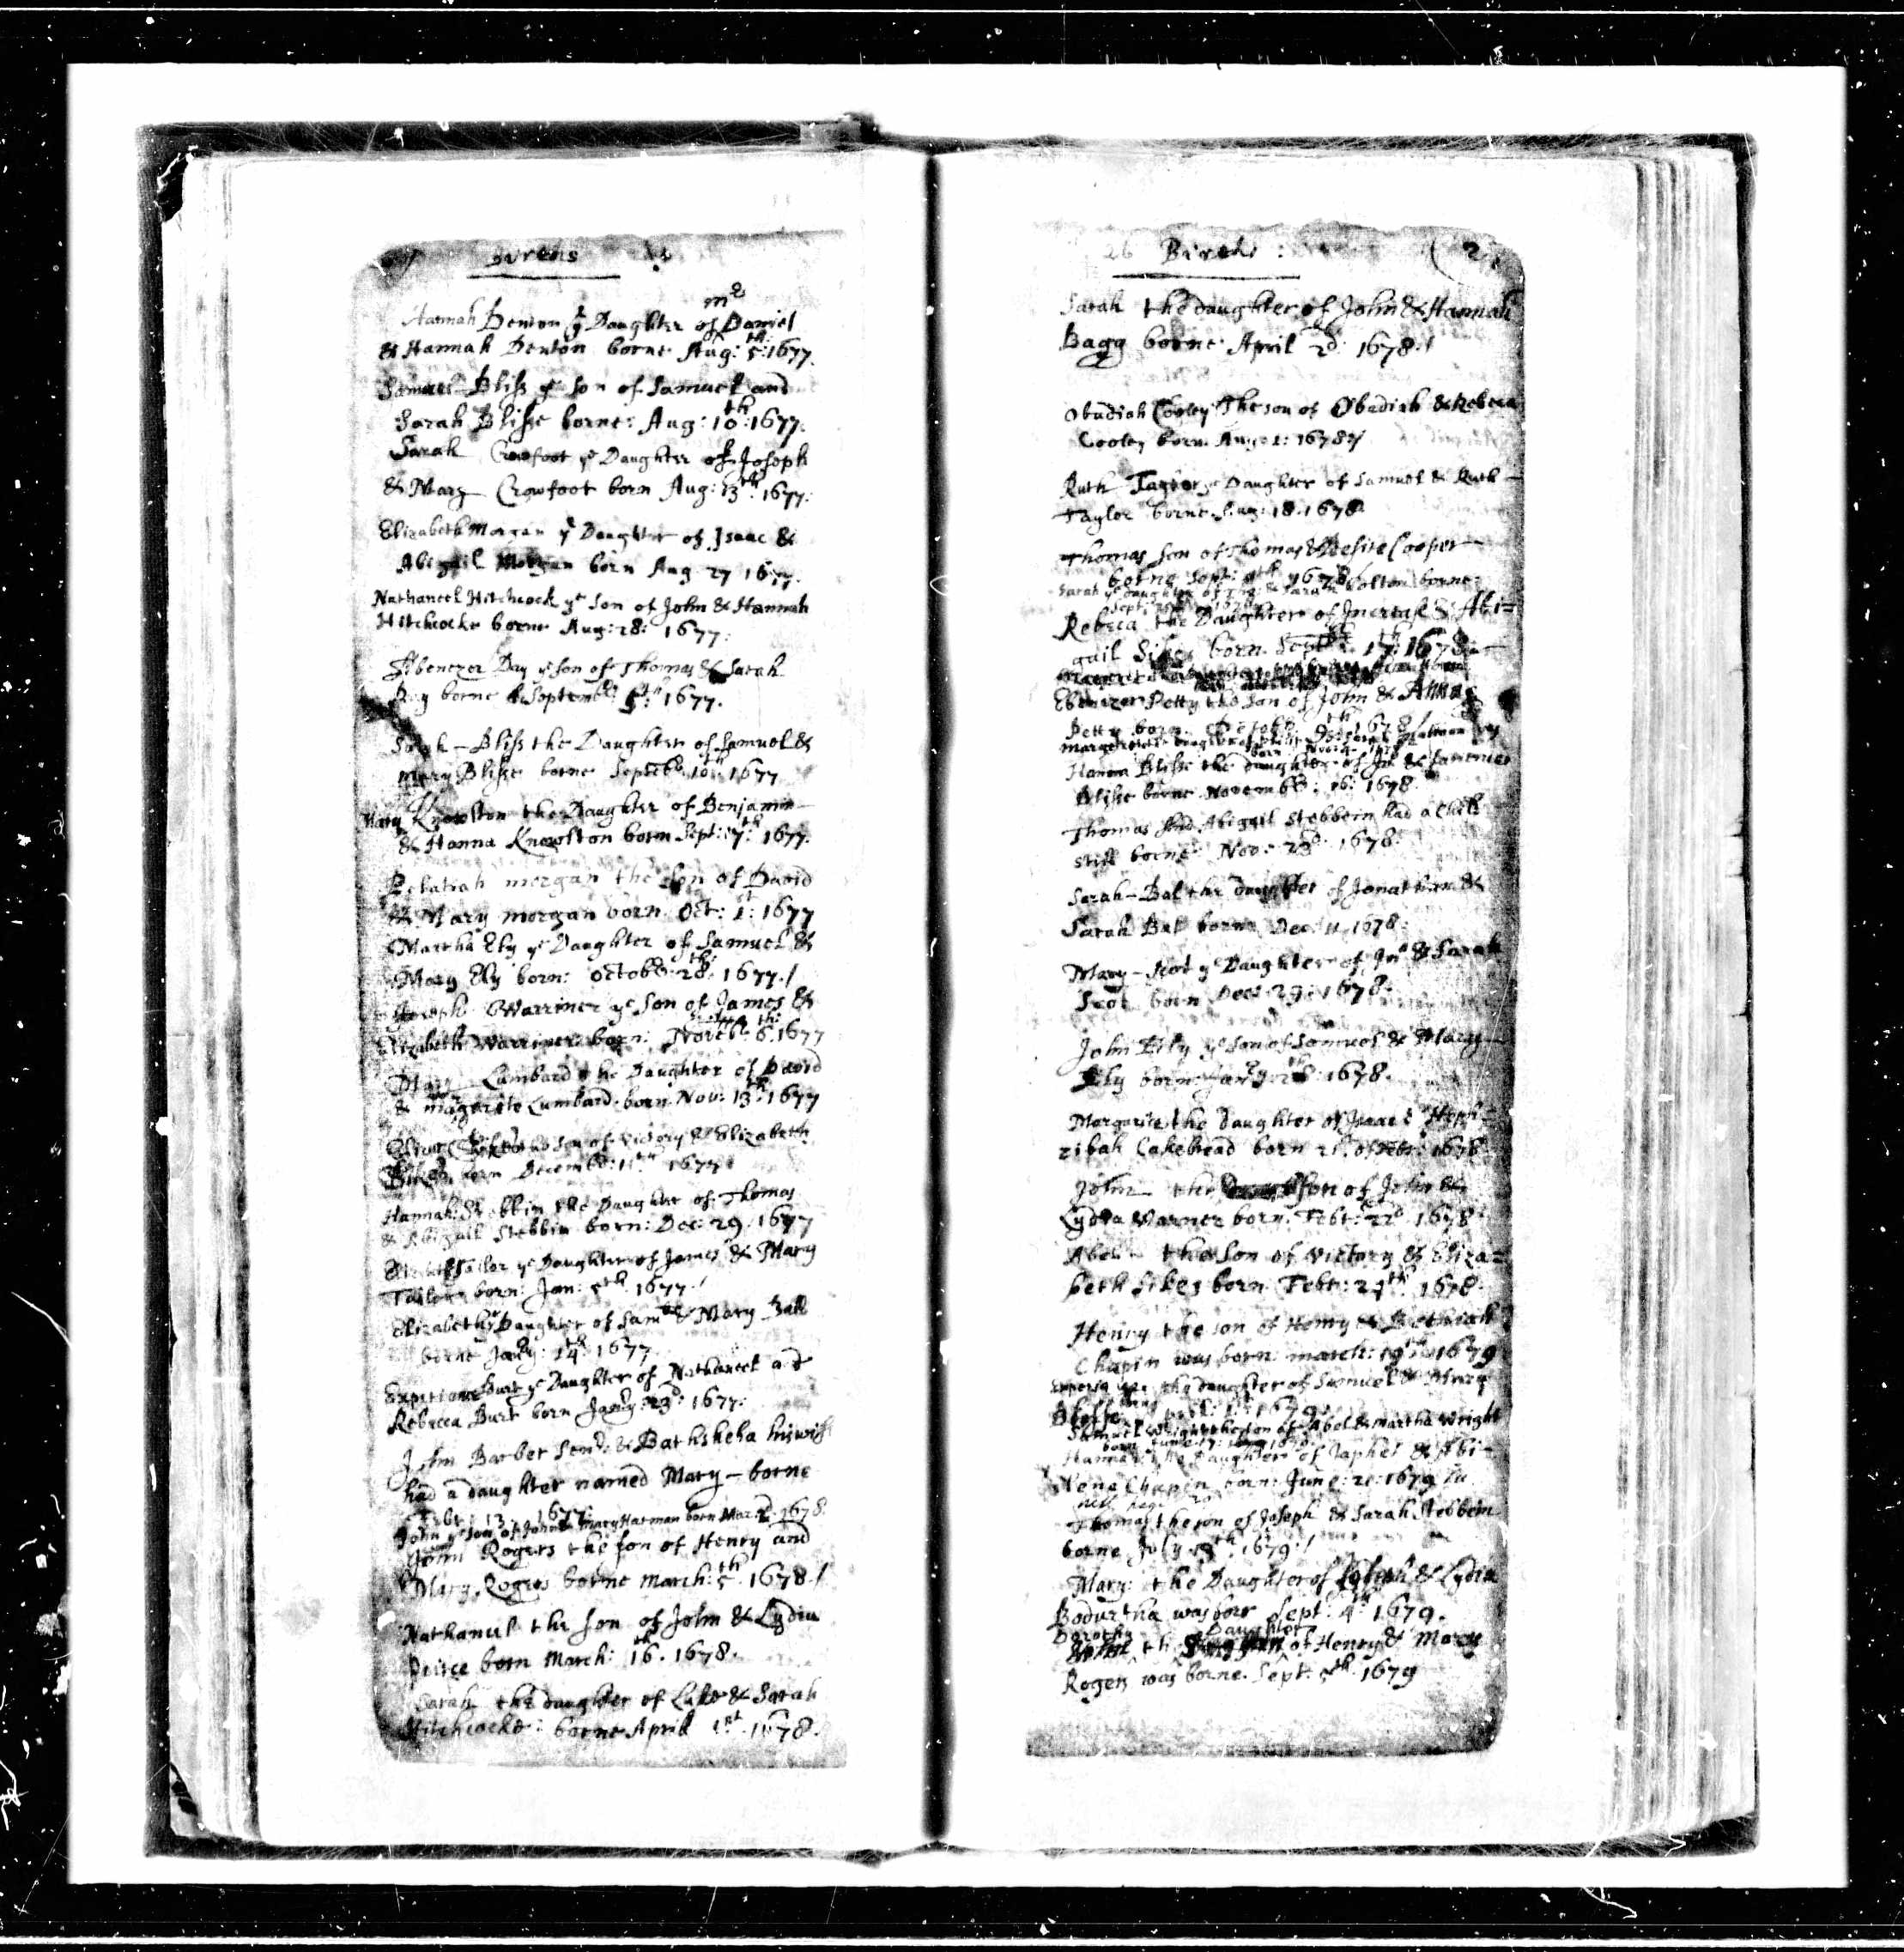 Births
Hannah Denton ye Daughter of mr Daniel
& Hannah Denton borne Aug: 5th: 1677.
Samuel Bliss ye son of Samuel and
Sarah Blisse borne: Aug: 10th: 1677.
Sarah Crowfoot ye Daughter of Joseph
& Mary Crowfoot born Aug: 13th: 1677:
Elizabeth Morgan ye Daughter of Isaac &
Abigail Morgan born Aug. 27 1677.
Nathaneel Hitchcock ye son of John & Hannah
Hitchcocke borne Aug: 28: 1677:
Ebenezer Day ye son of Thomas & Sarah
Day borne Septembr 1677.
Sarah - Bliss the Daughter of Samuel &
mary Blisse borne Septebr 10th 1677
Mary Knowlton the Daughter of Benjamin
& Hanna Knowlton born Sept: 7th: 1677.
Pelatiah morgan the son of David
& Mary morgan born Oct: 1st: 1677
Martha Ely ye Daughter of Samuel &
Mary Ely born: Octobr: 28th: 1677./
Joseph Warriner ye Son of James &
Elizabeth Warriner born: Novebr 6th: 1677
Mary Lumbard the Daughter of David
& margarite Lumbard. born. Nov: 13th: 1677
son of Victory & Elizabeth
Sikes born Decembr: 11th 1677
Hannah Stebbin the Daughter of Thomas
& Abigall Stebbin born: Dec: 29: 1677
Tailor ye Daughter of James & Mary
Tailor born: Jan: 5th 1677./
Elizabeth ye Daughter of Saml & Mary Ball
borne Janry: 14th: 1677
Experience Burt ye Daughter of Nathaneel and
Rebecca Burt born Janry: 23d: 1677:
John Barber Senr: & Bathsheba his wife
had a daughter named Mary - borne
Febr: 13. 1677.
John ye son of John & Mary Harman born Mar. 1678
John Rogers the son of Henry and
Mary Rogers borne march: 5th 1678./
Nathanul the son of John & Lydia
born March: 16th. 1678.
Sarah the daughter of Luke & Sarah
Hitchcocke: borne April 1st. 1678.
26 Births:
Sarah the daughter of John & Hannah
Bagg borne April 2d: 1678./
Obadiah Cooley The son of Obadiah & Rebeca
Cooley born Aug: 1: 1678
Ruth Taylor ye Daughter of Samuel & Ruth
Taylor borne Aug: 18. 1678
Thomas son of Thomas & Desire Cooper
borne Sept: 1678
Sarah ye daughter of & Sarah Colton borne
Sept:
Rebeca the Daughter of Increase & Abi=
gail Sikes born. Septbr. 17th: 1678
Ebenezer Petty the son of John & Anna
Petty born. Octobr. 9th 1678/
Margerite
Hanna Blisse the daughter of Jno & Patience
Blisse borne Novembr: 16: 1678.
Thomas and Abigail Stebbein had a Child
still borne Nov: 23d. 1678.
Sarah - Bal the daughter of Jonathan &
Sarah Bal borne Dec: 11 1678:
Mary - Scot ye Daughter of Jno & Sarah
Scot born Dec: 29: 1678.
John Ely ye son of Samuel & Mary
Ely born: Janry: 28th: 1678.
Margarite the daughter of Isaac & Heph=
zibah Cakebread born 21. of Febr: 1678
John the son of John &
Lydia Warner born: Febr: 22d. 1678
Abel the Son of Victory & Eliza=
beth Sikes born Febr: 27th 1678.
Henry the son of Henry & Bethiah
Chapin was born: march: 19th 1679
the daughter of Samuel & Mary
Blisse 1: 1679.
Samuel Wright the son of Abel & martha Wright
born June 17:
Hannah the Daughter of Japhet & Abi-
lena Chapin born: June: 21: 1679
Thomas the son of Joseph & Sarah Stebbein
borne July 1679:/
Mary: the Daughter of Joseph & Lydia
Bodurtha was born Sept: 4th 1679.
Dorothy the Daughter of Henry & Mary
Rogers was borne. Sept: 5th. 1679